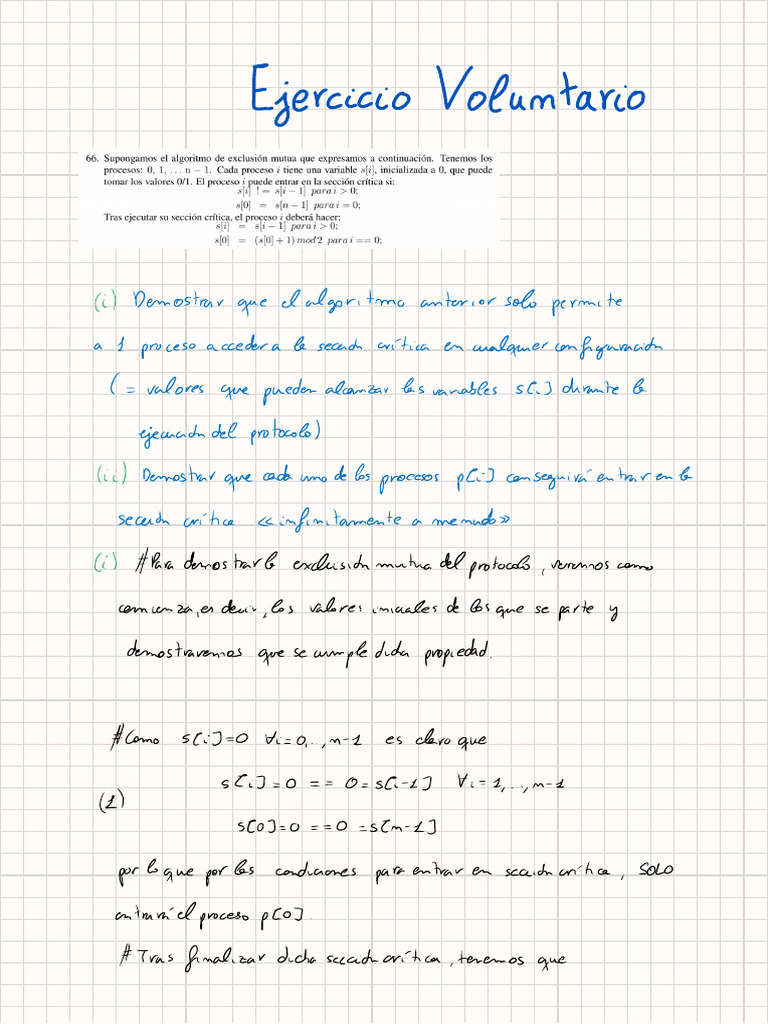 Ejercicio Voluntario
66. Supongamos el algoritmo de exclusión mutua que expresamos a continuación. Tenemos los
procesos: 0, 1, ... n − 1. Cada proceso i tiene una variable s[i], inicializada a 0, que puede
tomar los valores 0/1. El proceso i puede entrar en la sección crítica si:
s[i] != s[i − 1] para i > 0;
s[0] = s[n − 1] para i = 0;
Tras ejecutar su sección crítica, el proceso i deberá hacer:
s[i] = s[i − 1] para i > 0;
s[0] = (s[0] + 1) mod 2 para i == 0;
(i) Demostrar que el algoritmo anterior solo permite
a 1 proceso acceder a la sección crítica en cualquier configuración
(= valores que pueden alcanzar las variables s[i] durante la
ejecución del protocolo)
(ii) Demostrar que cada uno de los procesos p[i] conseguirá entrar en la
sección crítica «infinitamente a menudo»
(i) #Para demostrar la exclusión mutua del protocolo, veremos como
comienza, es decir, los valores iniciales de los que se parte y
demostraremos que se cumple dicha propiedad.
#Como s[i]=0 ∀i=0,..,n-1 es claro que
s[i]=0 == 0=s[i-1] ∀i=1,..,n-1
(1)
s[0]=0 ==0 =s[n-1]
por lo que por las condiciones para entrar en sección crítica, SOLO
entrará el proceso p[0].
# Tras finalizar dicha sección crítica, tenemos que